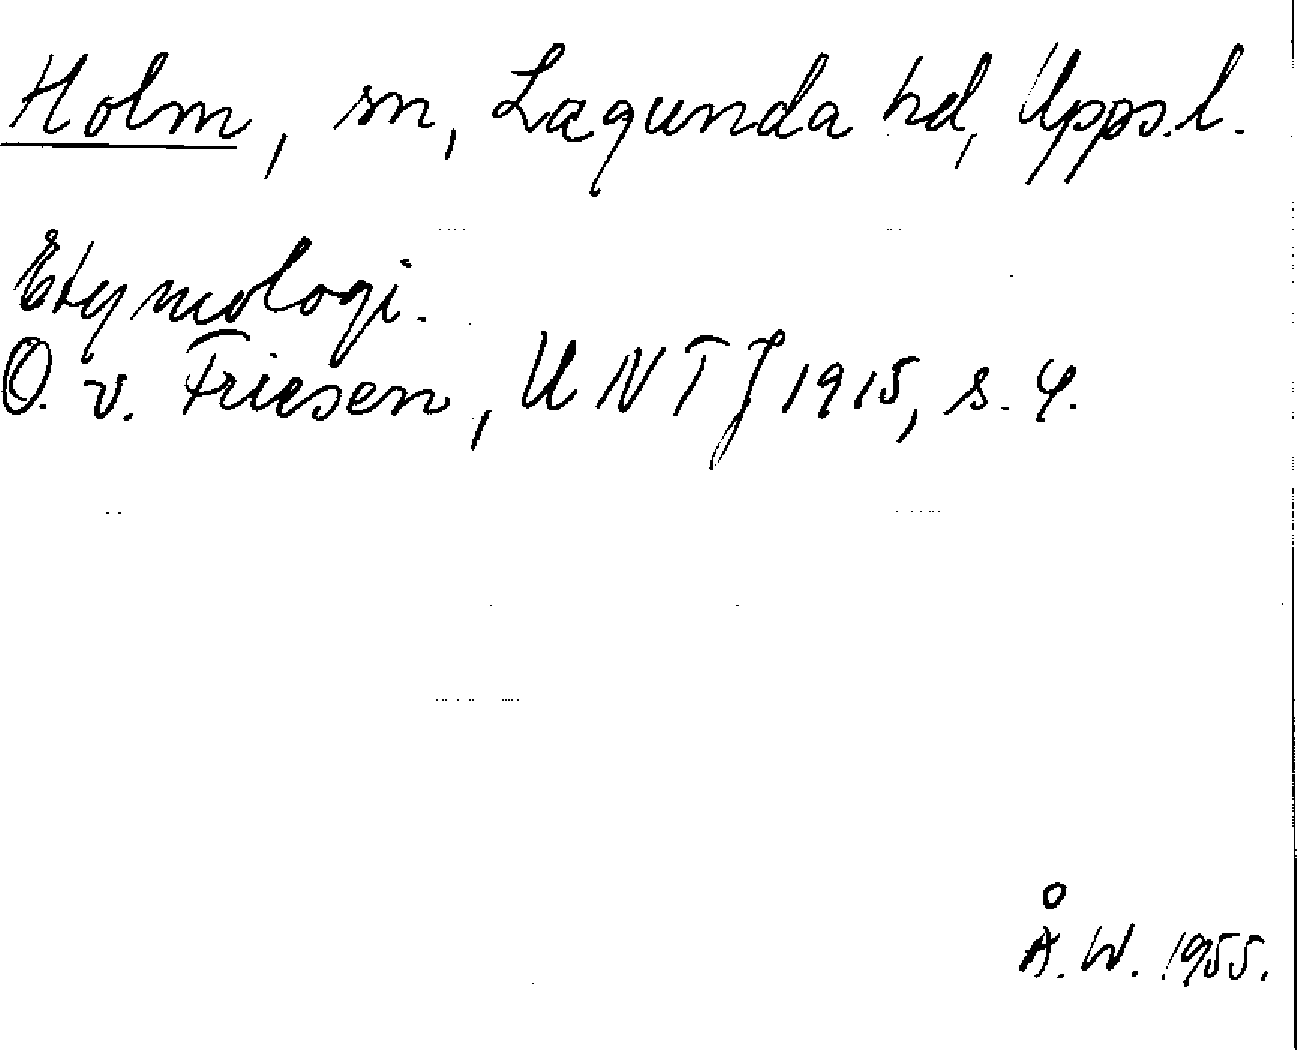 Holm, sn, Lagunda hd, Upps.l.
Etymologi.
O. v. Friesen, UNTJ 1915, s. 4.
Å. W. 1955.